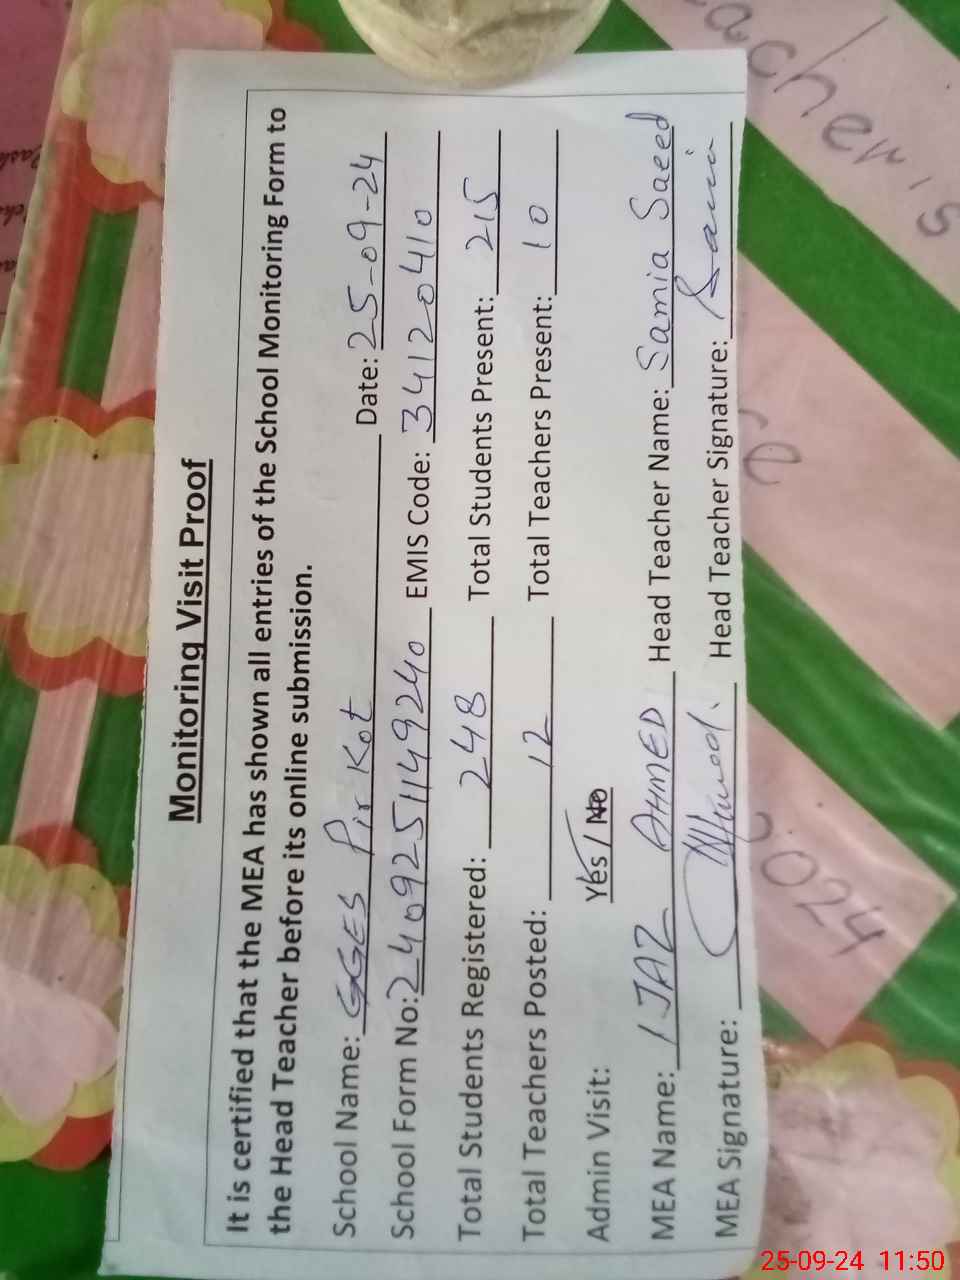 Monitoring Visit Proof
It is certified that the MEA has shown all entries of the School Monitoring Form to
the Head Teacher before its online submission.
School Name: GGES Pir Kot Date: 25-09-24
School Form No: 2409251149240 EMIS Code: 34120410
Total Students Registered: 248 Total Students Present: 215
Total Teachers Posted: 12 Total Teachers Present: 10
Admin Visit: Yes / No
MEA Name: IJAZ AHMED Head Teacher Name: Samia Saeed
MEA Signature: Head Teacher Signature: Samia
eacher's
2024
25-09-24 11:50